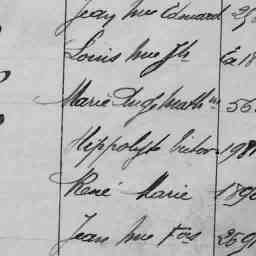 Jean Mie Edouard 25
Louis Mie Jh Ea 18
Marie Ange Math in 56
Hippolyte Victor 1981
René Marie 1890
Jean Mie Fois 2591